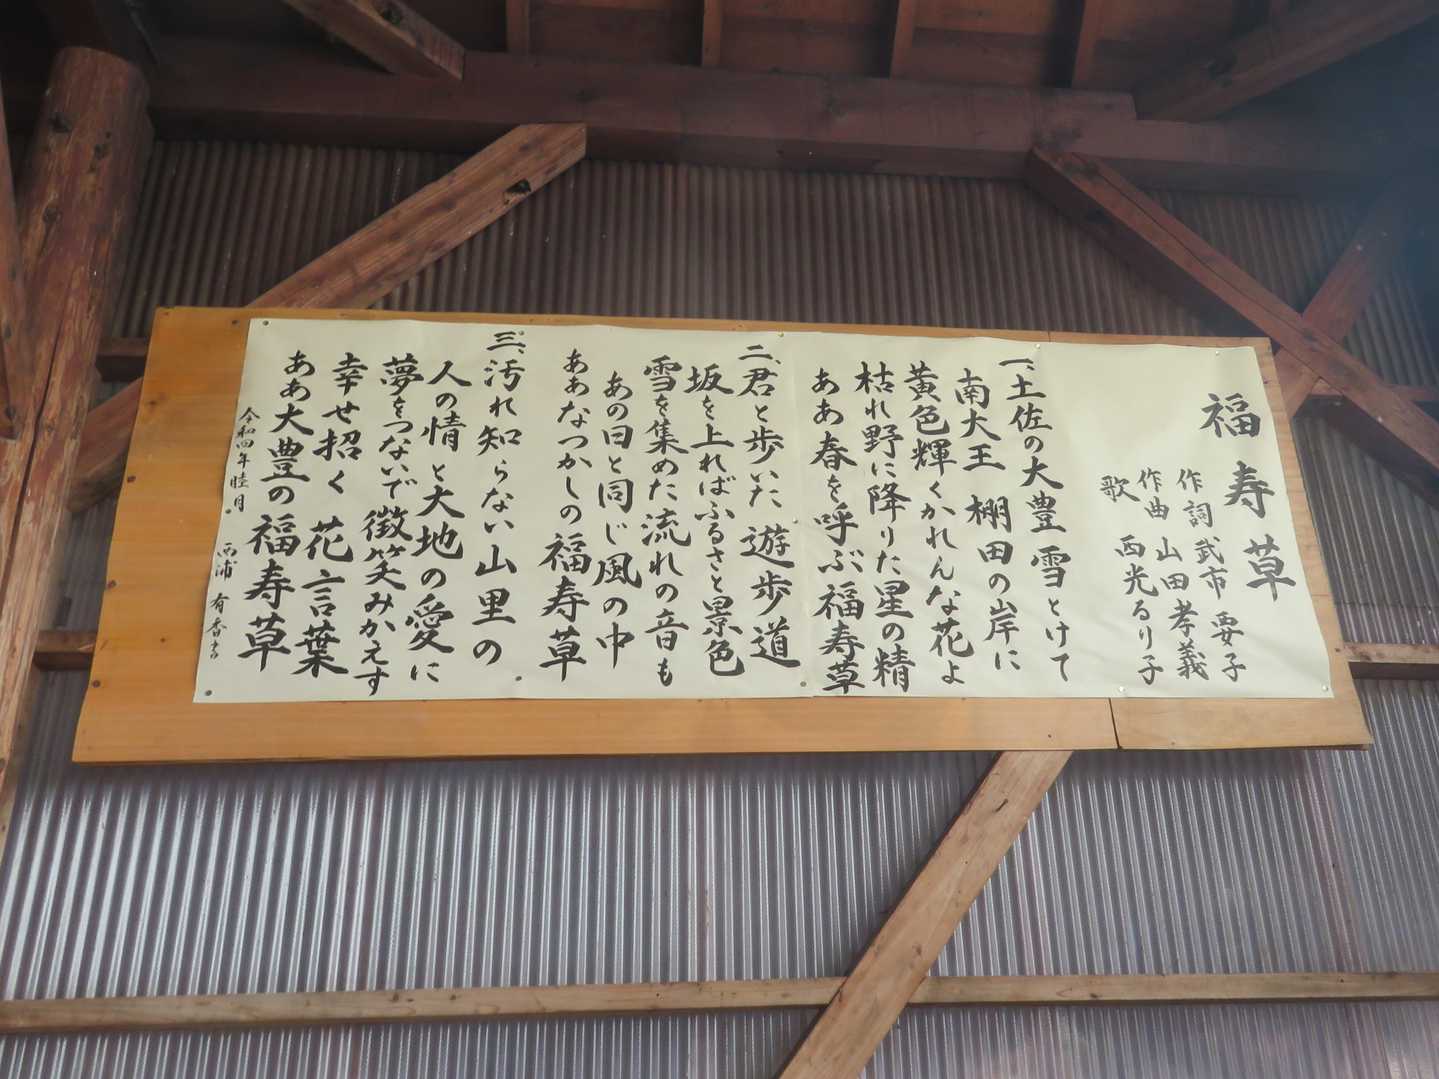 福寿草
作詞 武市 要子
作曲 山田孝義
歌 西光るり子
一、土佐の大豊 雪とけて
南大王 棚田の岸に
黄色輝くかれんな花よ
枯れ野に降りた星の精
ああ春を呼ぶ福寿草
二、君と歩いた 遊歩道
坂を上ればふるさと景色
雪を集めた流れの音も
あの日と同じ風の中
ああなつかしの福寿草
三、汚れ知らない山里の
人の情と大地の愛に
夢をつないで微笑みかえす
幸せ招く 花言葉
ああ大豊の福寿草
令和四年睦月 西浦 有香書